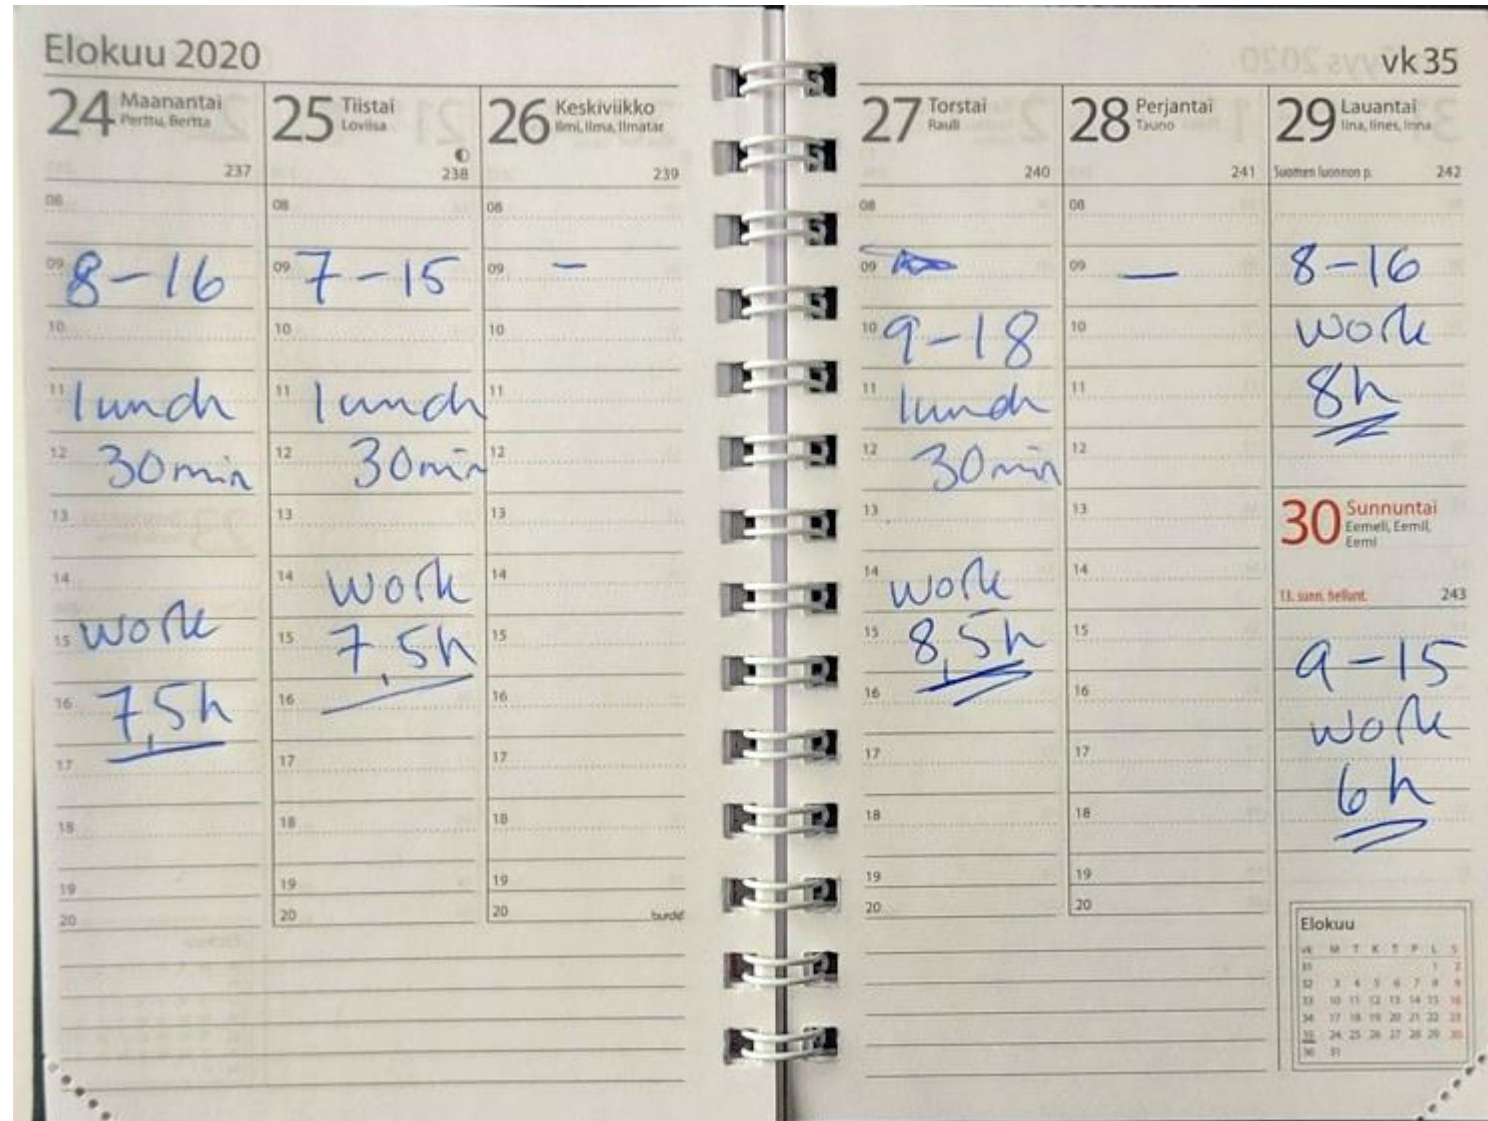 Elokuu 2020
24 Maanantai
Perttu, Bertta
237
08
09 8-16
10
11 lunch
12 30min
13
14
15 work
16 7,5h
17
18
19
20
25 Tiistai
Loviisa
238
08
09 7-15
10
11 lunch
12 30min
13
14 work
15 7,5h
16
17
18
19
20
26 Keskiviikko
Ilmi, Ilma, Ilmatar
239
08
09 -
10
11
12
13
14
15
16
17
18
19
20 burde
vk 35
27 Torstai
Rauli
240
08
09
10 9-18
11 lunch
12 30min
13
14 work
15 8,5h
16
17
18
19
20
28 Perjantai
Tauno
241
08
09 -
10
11
12
13
14
15
16
17
18
19
20
29 Lauantai
Iina, Iines, Inna
Suomen luonnon p. 242
8-16
work
8h
30 Sunnuntai
Eemeli, Eemil,
Eemi
13. sunn. hellunt. 243
9-15
work
6h
Elokuu
vk M T K T P L S
31 1 2
32 3 4 5 6 7 8 9
33 10 11 12 13 14 15 16
34 17 18 19 20 21 22 23
35 24 25 26 27 28 29 30
36 31